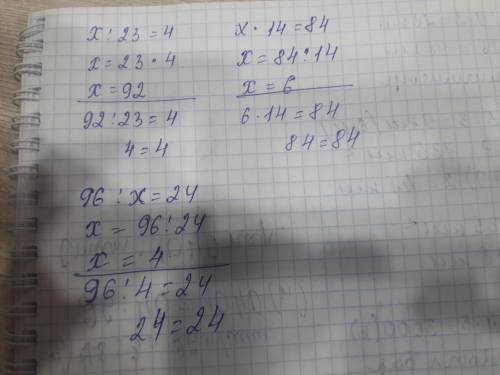 x : 23 = 4
x = 23 · 4
x = 92
92 : 23 = 4
4 = 4
x · 14 = 84
x = 84 : 14
x = 6
6 · 14 = 84
84 = 84
96 : x = 24
x = 96 : 24
x = 4
96 : 4 = 24
24 = 24